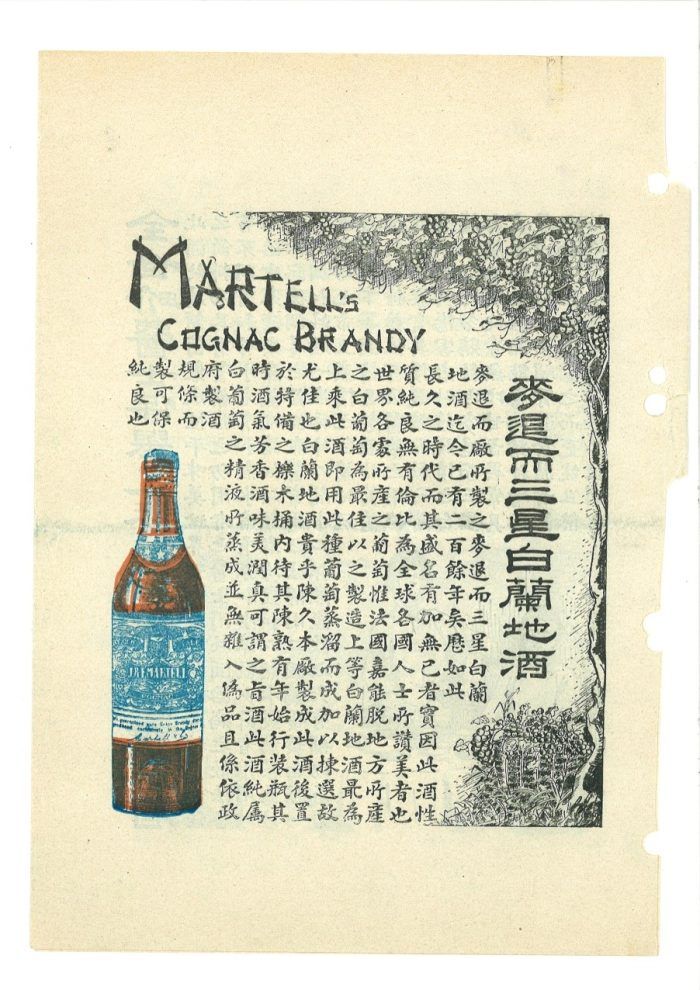 MARTELL'S
COGNAC BRANDY
麥退而三星白蘭地酒
麥退而廠所製之麥退而三星白蘭
地酒迄今已有二百餘年矣歷如此
長久之時代而其盛名有加無已者實因此酒性
質純良無有倫比為全球各國人士所讚美者也
世界各處所產之葡萄惟法國嘉能脱地方所產
之白葡萄為最佳以之製造上等白蘭地酒最為
上乘此酒即用此種葡萄蒸溜而成加以揀選故
尤佳也白蘭地酒貴乎陳久本廠製成此酒後置
於特備之櫟木桶內待其陳熟有年始行裝瓶其
時酒氣芳香酒味美潤真可謂之旨酒此酒純屬
白葡萄之精液所蒸成並無雜入偽品且係依政
府製酒
規條而
製可保
純良也
J.&F. MARTELL